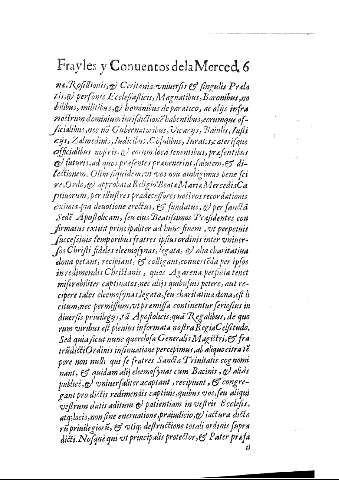 Frayles y Conuentos de la Merced. 6
na, Rosilionis, & Ceritoniæ vniuersis & singulis Præla
tis, & personis Ecclesiasticis, Magnatibus, Baronibus, no
bilibus, militibus, & hominibus de paratico, ac alijs infra
nostrum dominium iurisdictionē habentibus, eorumque of-
ficialibus, nec nō Gubernatoribus, Vicarijs, Baiulis, Iusti
cijs, Zalmedinis, Iudicibus, Cōsulibus, Iuratis, cæterisque
officialibus nostris, & eorum loca tenentibus, præsentibus
& futuris, ad quos præsentes peruenerint, salutem, & di-
lectionem. Olim siquidem, vt vos non ambigimus bene sci
re, Ordo, & approbata Religio Beatæ Mariæ Mercedis Ca
ptiuorum, per illustres prædecessores nostros recordationis
eximiæ qua deuotione erectus, & fundatus, & per sanctā
Sedē Apostolicam, seu eius Beatissimos Præsidentes con
firmatus extitit principaliter ad hunc finem, vt perpetuis
successiuis temporibus fratres ipsius ordinis inter vniuer-
sos Christi fideles eleemosynas, legata, & alia charitatiua
dona petant, recipiant, & colligant, conuertēda per ipsos
in redimendis Christianis, quos Agarena perfidia tenet
miserabiliter captiuatos, nec alijs quibusuis petere, aut re-
cipere tales eleemosynas legata, seu charitatiua dona, est li
citum, nec permissum, vt præmissa continentur seriosius in
diuersis priuilegijs, tā Apostolicis quā Regalibus, de quo
rum viribus est plenius informata nostra Regia Celsitudo.
Sed quia sicut nunc querelosa Generalis Magistri, & fra
trū dicti Ordinis insinuatione percepimus, ab aliquo citra tē
pore non nulli qui se fratres Sanctæ Trinitatis cognomi
nant, & quidam alij eleemosynas cum Bacinis, & aliàs
publicè, & vniuersaliter acaptant, recipiunt, & congre-
gant pro dictis redimendis captiuis, quibus vos, seu aliqui
vestrum datis aditum & patientiam in vestris Ecclesijs,
atq; locis, non sine eneruatione, præiudicio, & iactura dicto
rū priuilegiorū, & vtiq; destructione totali ordinis supra
dicti. Nosque qui vt principalis protector, & Pater præfa
ti